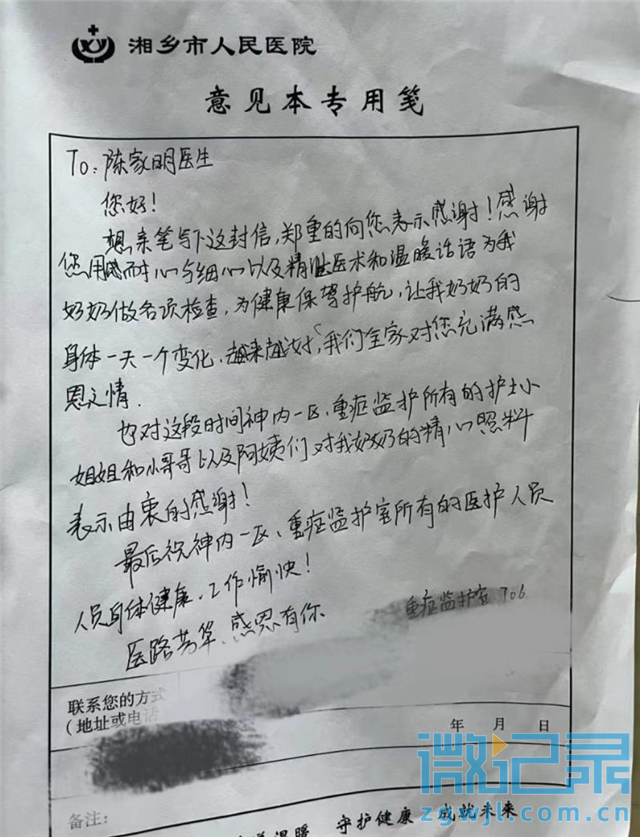 湘乡市人民医院
意见本专用笺
To：陈家明医生
您好！
想亲笔写下这封信，郑重的向您表示感谢！感谢
您用耐心与细心以及精湛医术和温暖话语为我
奶奶做各项检查，为健康保驾护航，让我奶奶的
身体一天一个变化，越来越好，我们全家对您充满感
恩之情.
也对这段时间神内一区、重症监护所有的护士小
姐姐和小哥哥以及阿姨们对我奶奶的精心照料
表示由衷的感谢！
最后祝神内一区、重症监护室所有的医护人员
人员身体健康，工作愉快！
医路芳华、感恩有你
重症监护室 706
联系您的方式
（地址或电话
年 月 日
备注：
温暖 守护健康 成就未来
微记录
zgwjl.com.cn